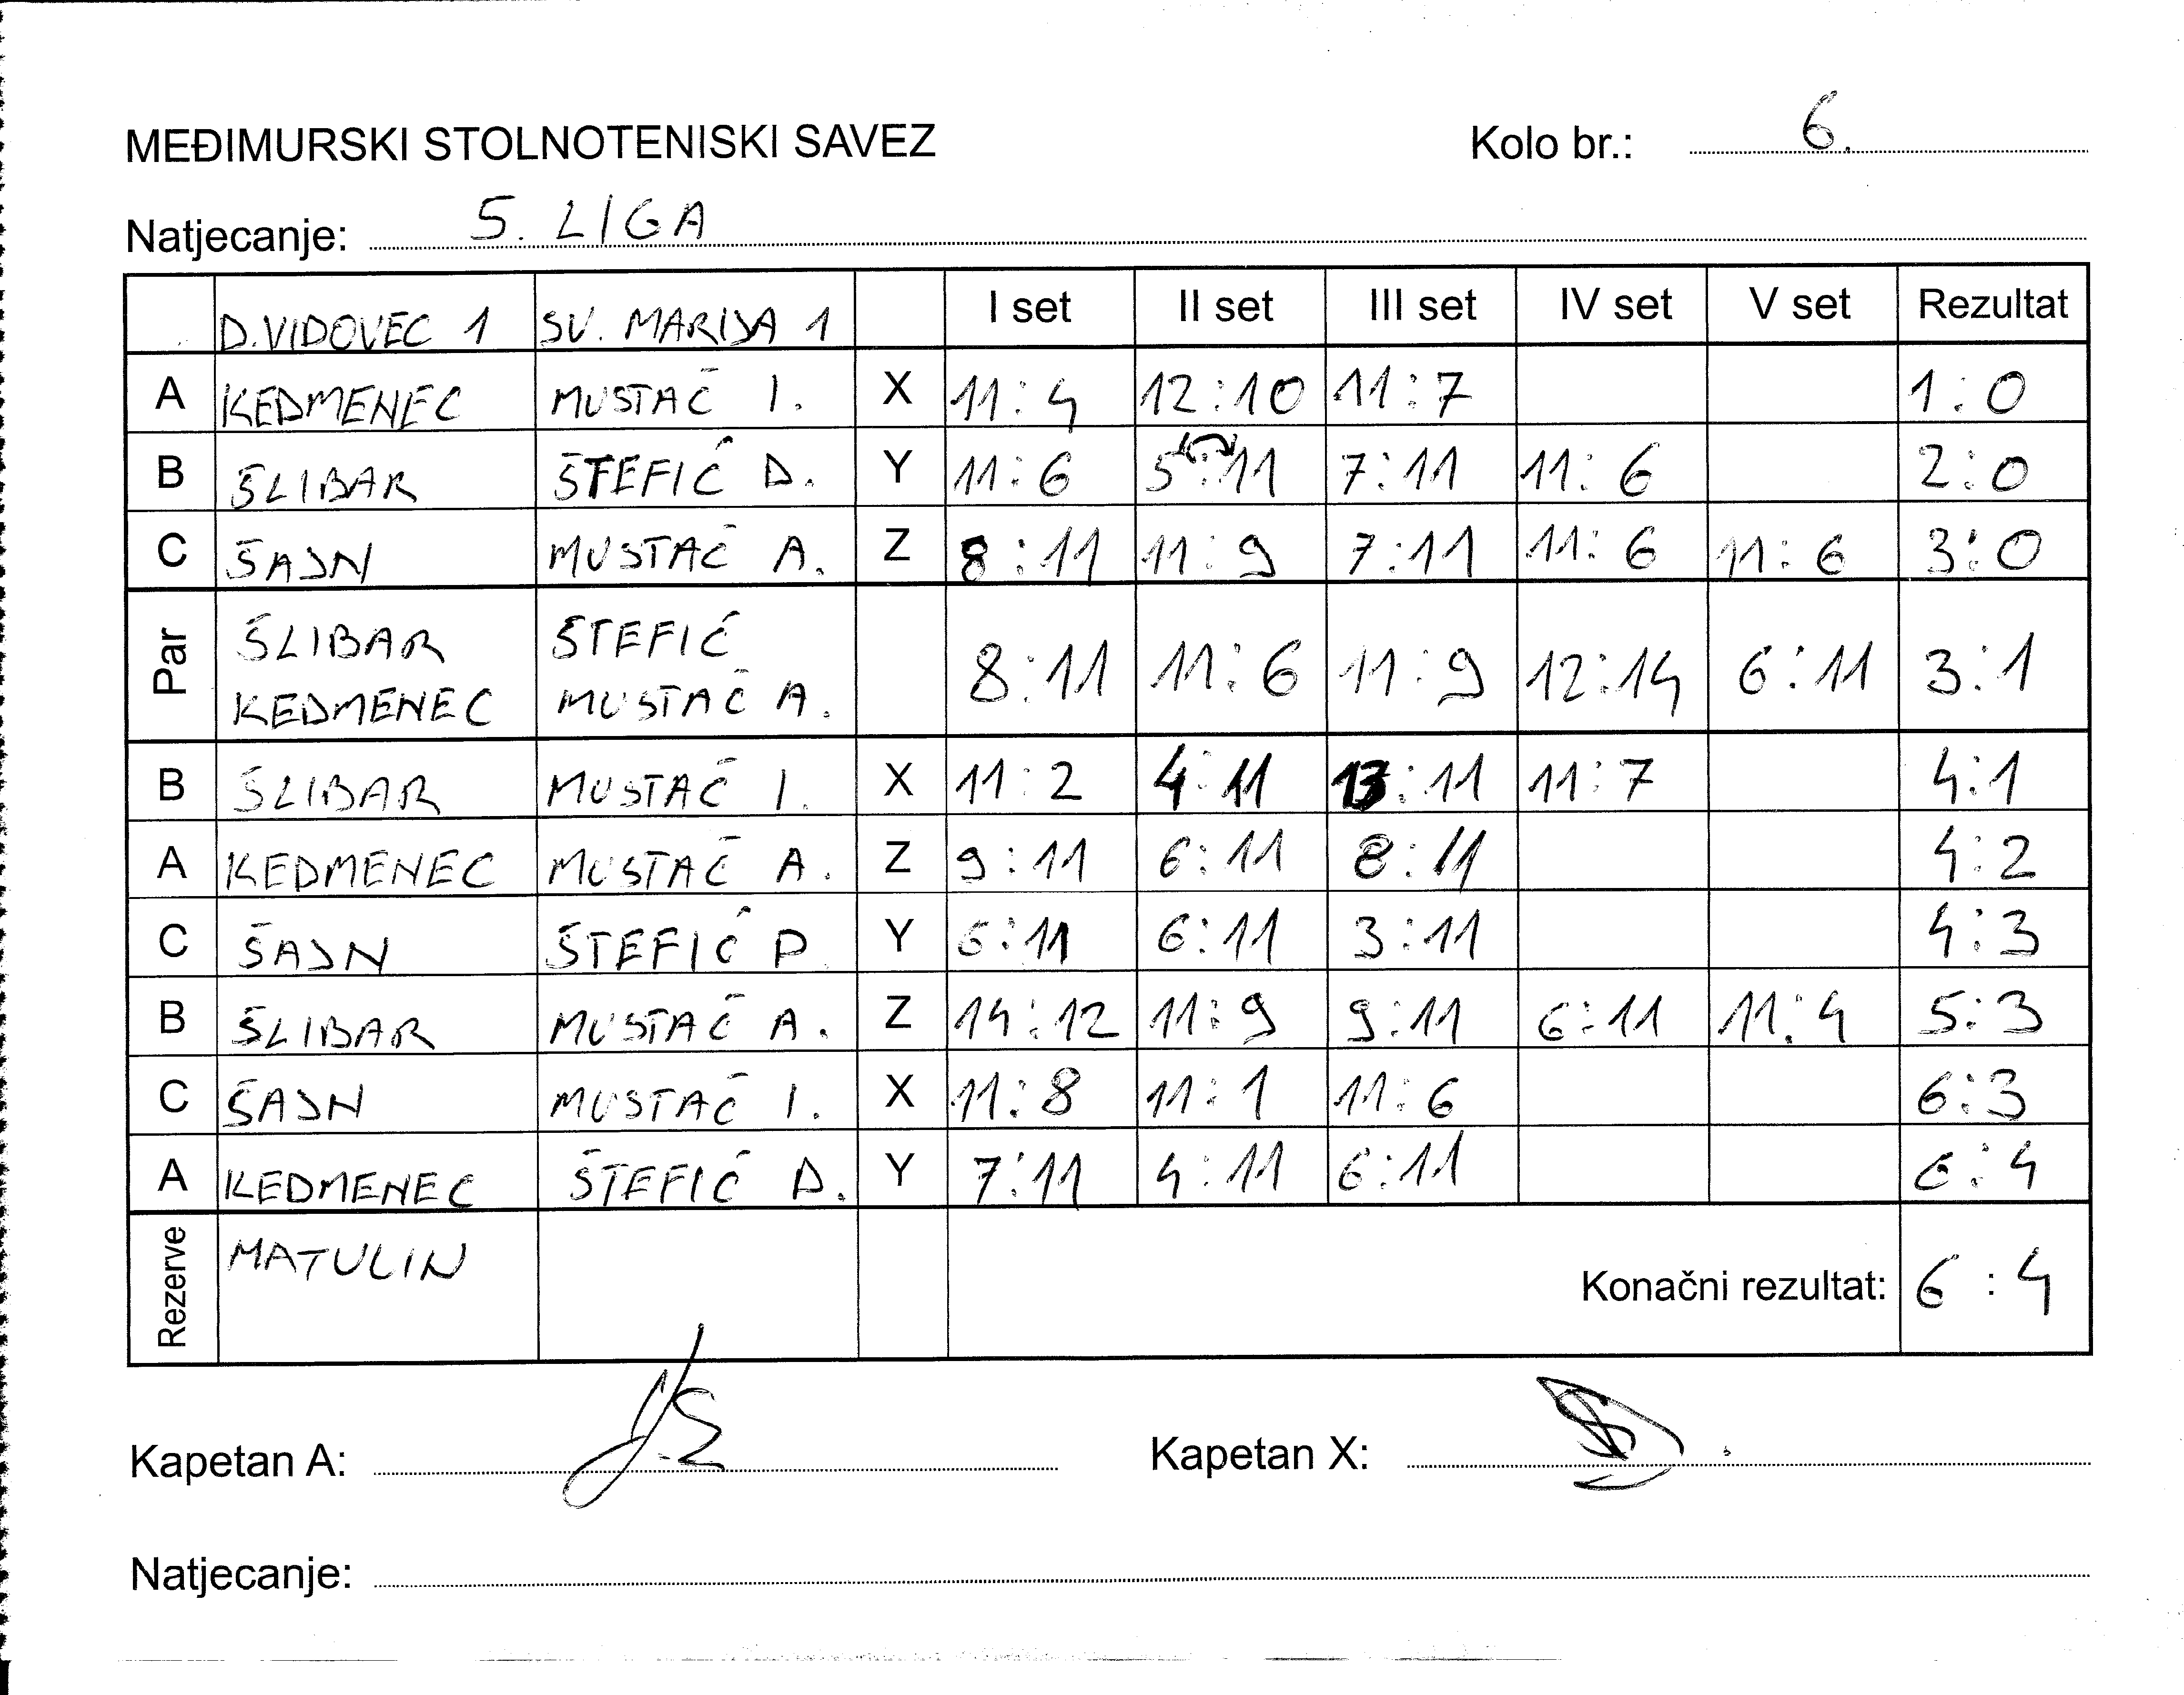 MEĐIMURSKI STOLNOTENISKI SAVEZ Kolo br.: 6.
Natjecanje: 5. LIGA
D.VIDOVEC 1 SV. MARIJA 1 I set II set III set IV set V set Rezultat
A KEDMENEC MUSTAČ I. X 11:4 12:10 11:7 1:0
B ŠLIBAR ŠTEFIĆ D. Y 11:6 5:11 7:11 11:6 2:0
C ŠAJN MUSTAČ A. Z 8:11 11:9 7:11 11:6 11:6 3:0
Par ŠLIBAR ŠTEFIĆ 8:11 11:6 11:9 12:14 6:11 3:1
KEDMENEC MUSTAČ A.
B ŠLIBAR MUSTAČ I. X 11:2 4:11 13:11 11:7 4:1
A KEDMENEC MUSTAČ A. Z 9:11 6:11 8:11 4:2
C ŠAJN ŠTEFIĆ D Y 6:11 6:11 3:11 4:3
B ŠLIBAR MUSTAČ A. Z 14:12 11:9 9:11 6:11 11:4 5:3
C ŠAJN MUSTAČ I. X 11:8 11:1 11:6 6:3
A KEDMENEC ŠTEFIĆ D. Y 7:11 4:11 6:11 6:4
Rezerve MATULIN Konačni rezultat: 6:4
Kapetan A: Kapetan X:
Natjecanje: